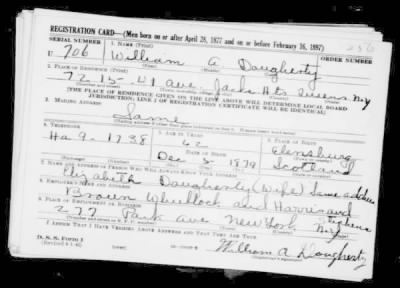 REGISTRATION CARD—(Men born on or after April 28, 1877 and on or before February 16, 1897)
SERIAL NUMBER 1. NAME (Print) ORDER NUMBER
U 706 William A Daugherty
2. PLACE OF RESIDENCE (Print)
72 15-41 Ave. Jacks Hts Queens N.Y
[THE PLACE OF RESIDENCE GIVEN ON THE LINE ABOVE WILL DETERMINE LOCAL BOARD
JURISDICTION; LINE 2 OF REGISTRATION CERTIFICATE WILL BE IDENTICAL]
3. MAILING ADDRESS
Same
4. TELEPHONE 5. AGE IN YEARS 6. PLACE OF BIRTH
Ha 9-1738 62
DATE OF BIRTH
Dec 5 1879 Scotland
7. NAME AND ADDRESS OF PERSON WHO WILL ALWAYS KNOW YOUR ADDRESS
Elizabeth Daugherty (Wife) Same address
8. EMPLOYER'S NAME AND ADDRESS
Brown Wheelock and Harris and
9. PLACE OF EMPLOYMENT OR BUSINESS
277 Park Ave New York N.Y
I AFFIRM THAT I HAVE VERIFIED ABOVE ANSWERS AND THAT THEY ARE TRUE.
D. S. S. Form 1
(Revised 4-1-42)
William A Daugherty